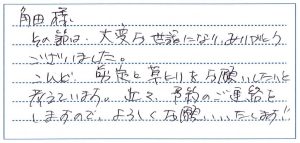 角田様
その節は、大変お世話になり、ありがとう
ございました。
こんど、剪定と草とりをお願いしたいと
考えています。近々、予約のご連絡を
しますので、よろしくお願いいたします!